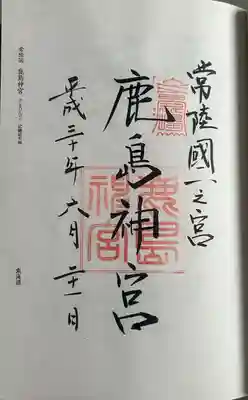 常陸國一之宮
鹿島神宮
平成三十年六月二十一日
鹿島神宮
常陸国 鹿島神宮
東海道